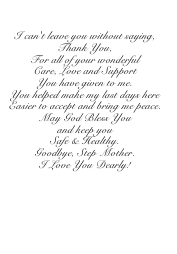 I can't leave you without saying,
Thank You,
For all of your wonderful
Care, Love and Support
You have given to me.
You helped make my last days here
Easier to accept and bring me peace.
May God Bless You
and keep you
Safe & Healthy.
Goodbye, Step Mother.
I Love You Dearly!